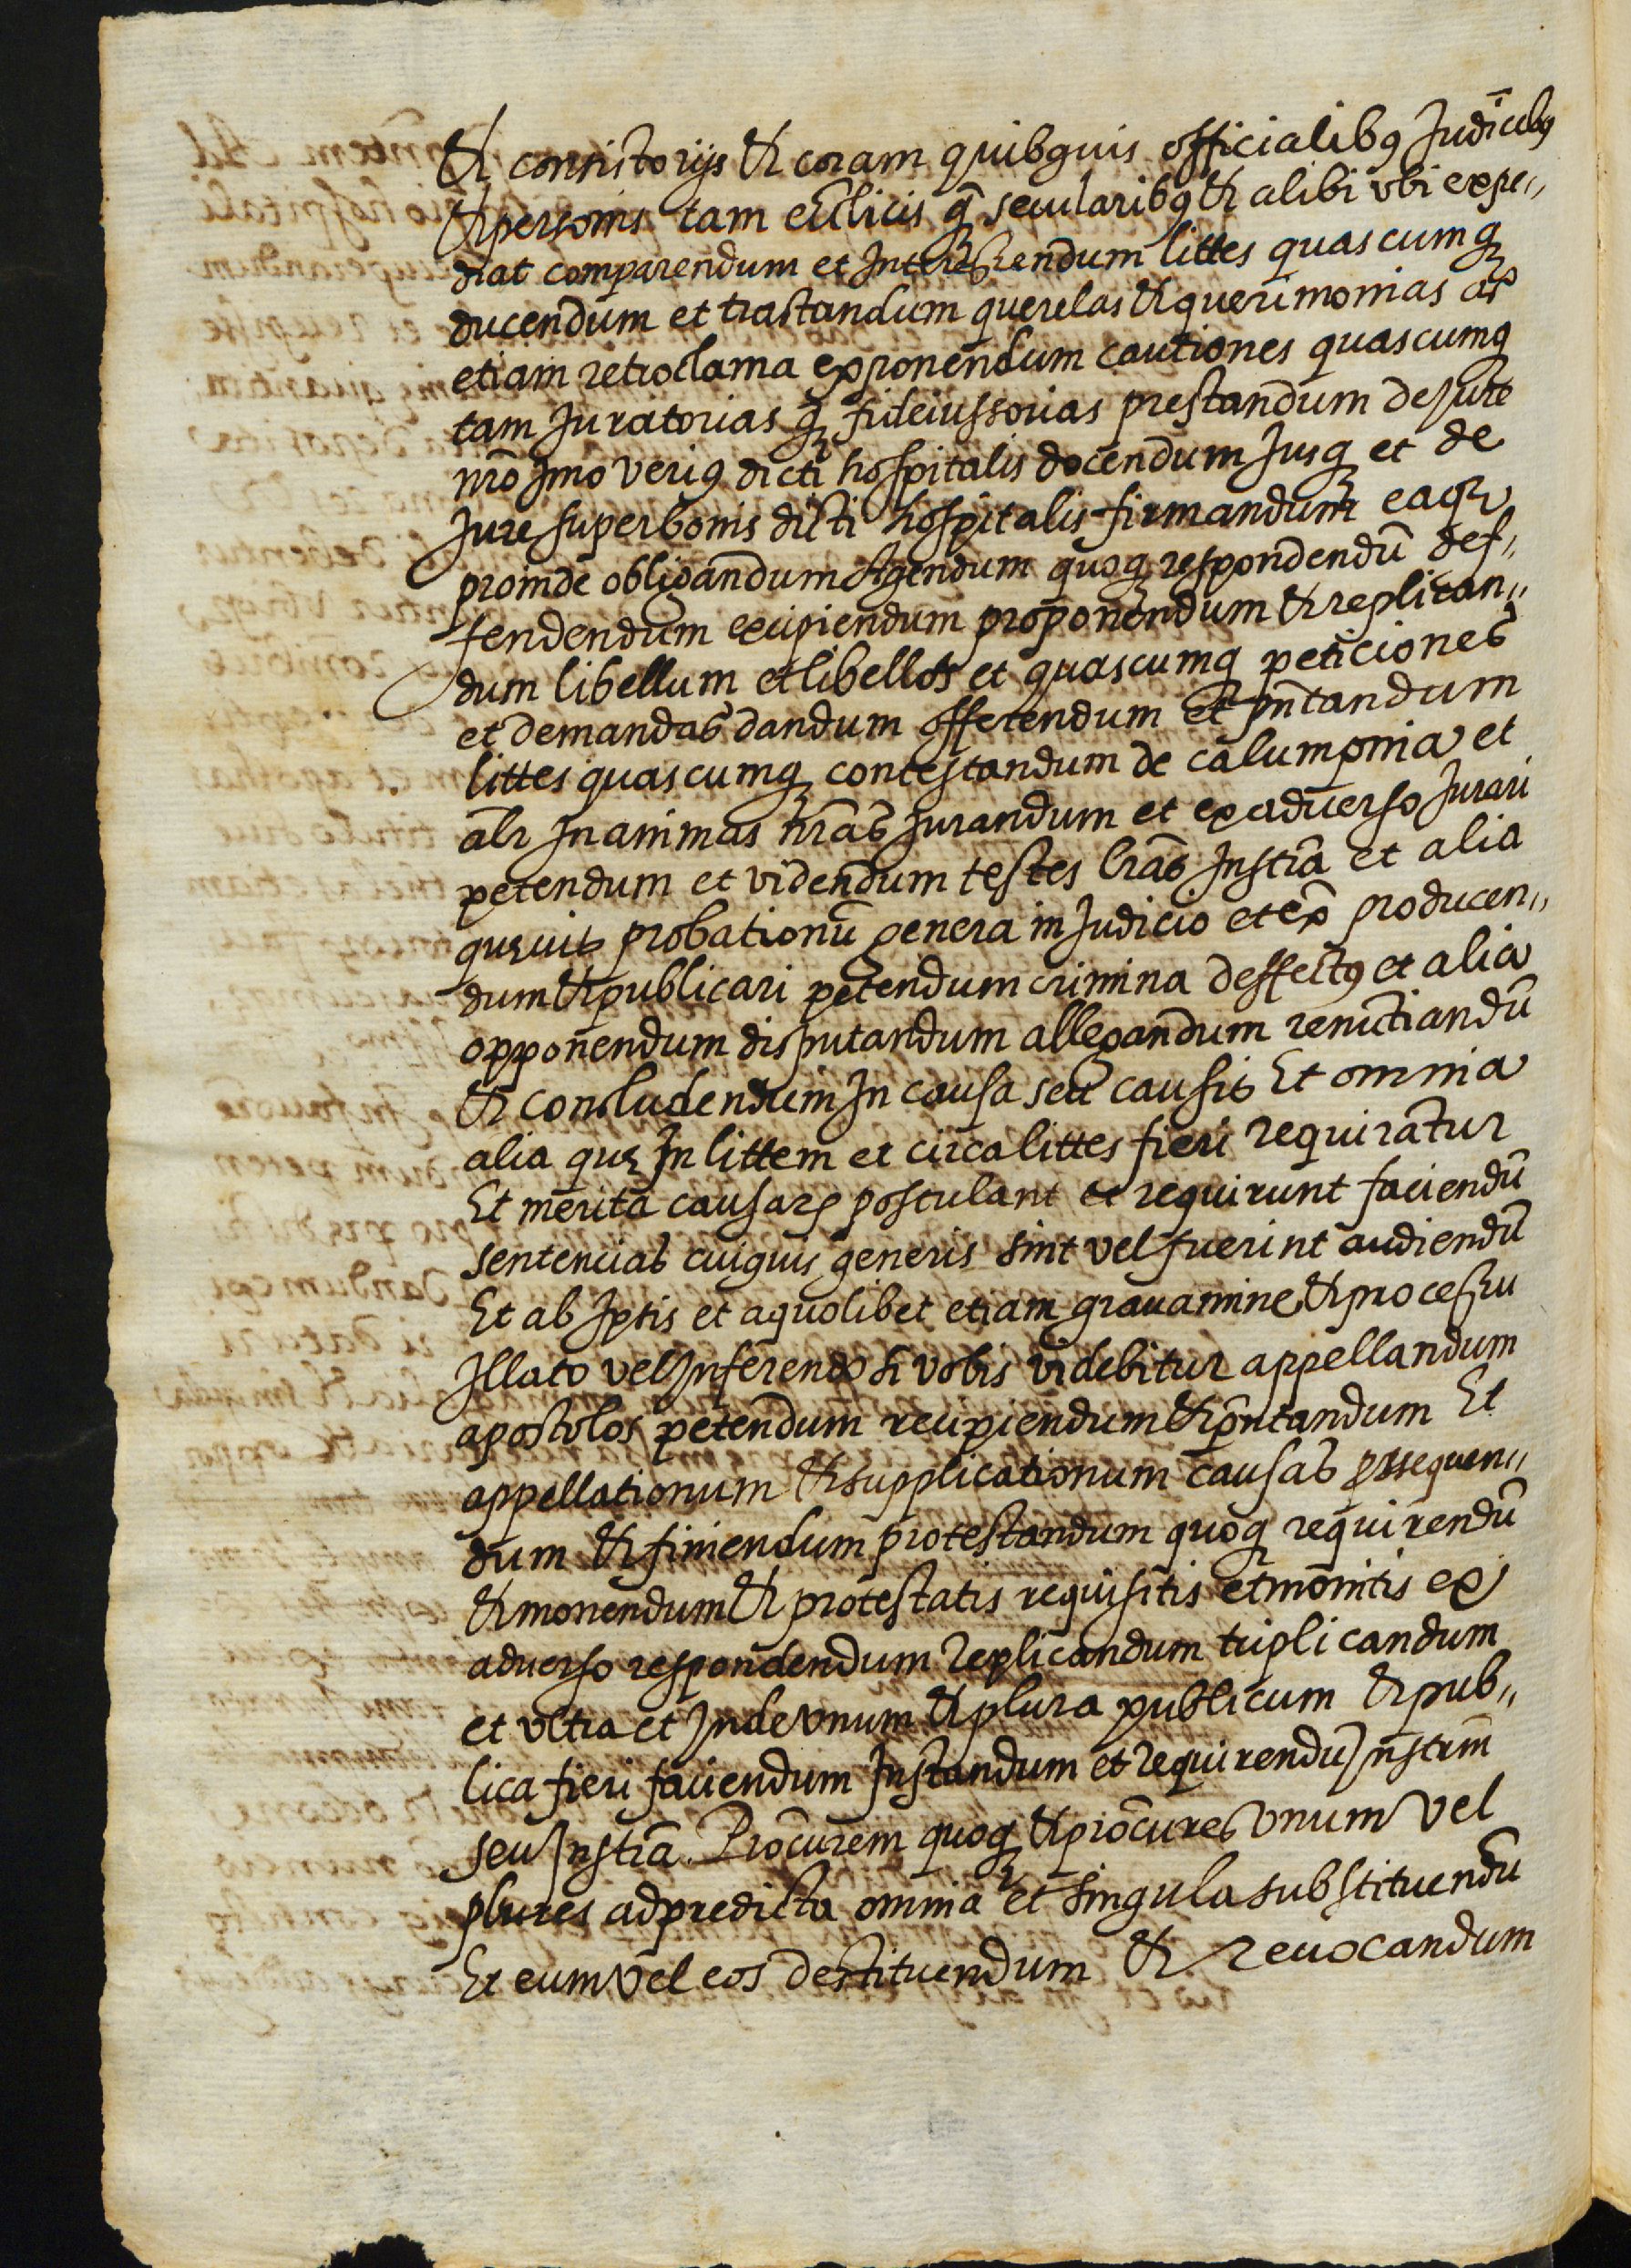 Et consistorijs Et coram quibusuis officialibus Judicibus
Et personis tam ecclicis q̃ secularibus Et alibi vbi expe„
diat comparendum et Interessendum littes quascumq
ducendum et tractandum querelas Et querimonias ac
etiam retroclama exponendum cautiones quascumq
tam Juratorias q̃ fideiussorias prestandum de Jure
nr̃o Jmo verius dicti hospitalis docendum Jusq et de
Jure super bonis dicti hospitalis firmandum eaq
proinde obligandum Agendum quoq respondendũ def„
fendendum excipiendum proponendum Et replican„
dum libellum et libellos et quascumq peticiones
et demandas dandum offerendum et pñtandum
littes quascumq contestandum de calumpnia et
alr̃ Jn animas nr̃as Jurandum et ex aduerso Jurari
petendum et videndum testes lr̃as Jnstr̃a et alia
queuis probationũ genera in Judicio et ex̃ producen„
dum Et publicari petendum crimina deffectus et alia
opponendum disputandum allegandum renũtiandũ
Et concludendum Jn causa seu causis Et omnia
alia que Jn littem et circa littes fieri requirãtur
Et merita causar postulant et requirunt faciendũ
sentencias cuiquis generis sint vel fuerint audiendũ
Et ab Jpsis et a quolibet etiam grauamine Et processu
Jllato vel Jnferendo si vobis videbitur appellandum
apostolos petendum recipiendum Et pñtandum Et
appellationum Et supplicationum causas prosequen„
dum Et finiendum protestandum quoq requirendũ
Et monendum Et protestatis requisitis et monitis ex
aduerso respondendum Replicandum triplicandum
et vltra et Jnde vnum Et plura publicum Et pub„
lica fieri faciendum Jnstandum et requirendũ Jnstrm̃
seu Jnstr̃a. Procũrem quoq Et procũres vnum vel
plures ad predicta omnia et singula substituendũ
Et eum vel eos destituendum Et reuocandum